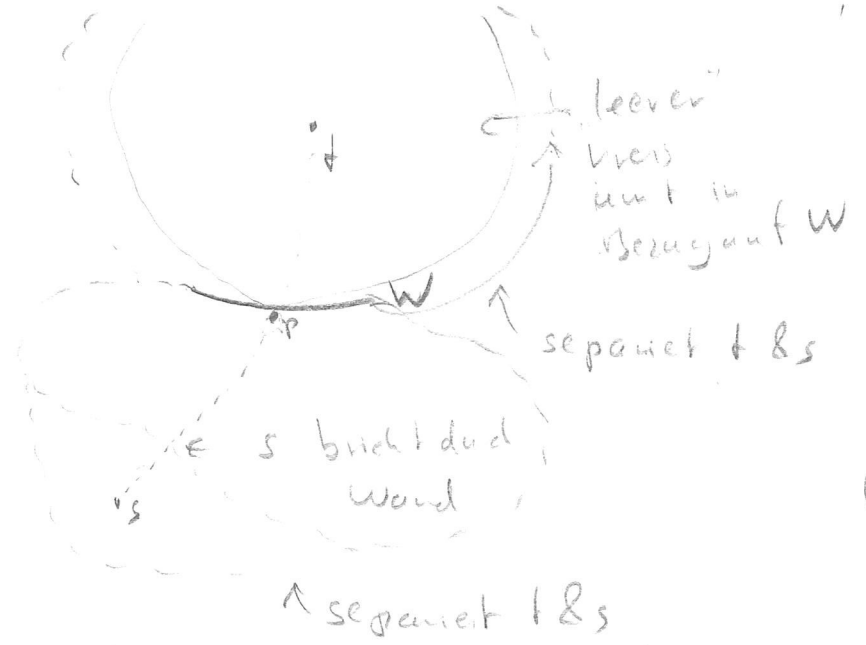 t
„leerer“
Kreis
um t in
Bezug auf W
W
p
separiert t & s
s bricht durch
Wand
s
separiert t & s